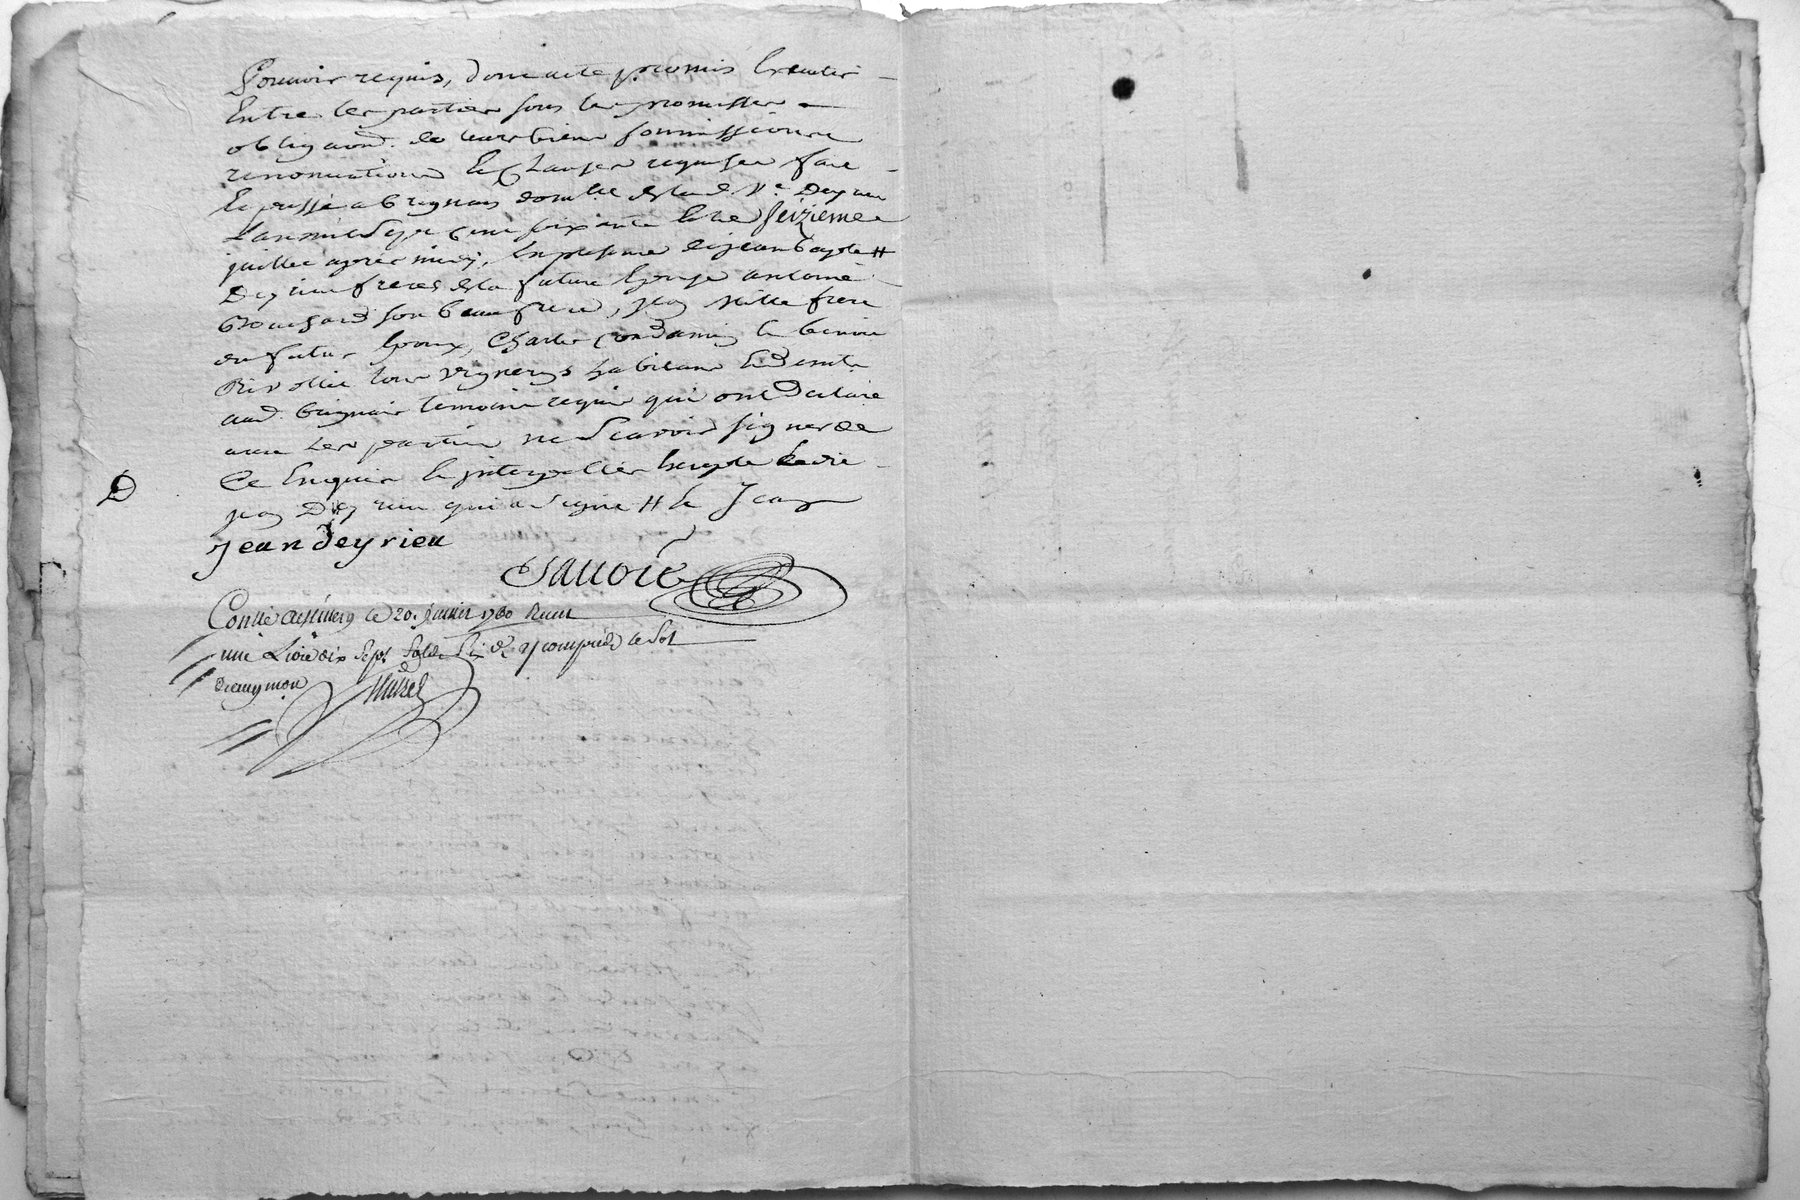 Pouvoir requis, dont acte promis Executer
Entre les parties sous les promesses
obligaond. de leurs biens soumissions
renonciations Et Clauses requises fait
Et passé a Brignais domlle de lad. Ve. Deyrieu
L'an mil Sept cent soixante Et le seizieme
juillet apres midy, En presence de jean bapte #
Deyrieu freres de la future Epouse antoine
Bouchard son beaufrere, jean frere
du futur Epoux, Charles Condamin Et benoit
Rivollie tous vignerons habitans
aud. Brignais temoins requis qui ont Declaré
avec les parties ne Scavoir signer de
Ce Enquis Et jnterpellés Excepté ledit
jean Deyrieu qui a signé # Et Jean
D
jean deyrieu
Savoie
Conllé a le 20. juillet 1760 Recu
une Livre dix Sept Sols Six d. y compris le Sol